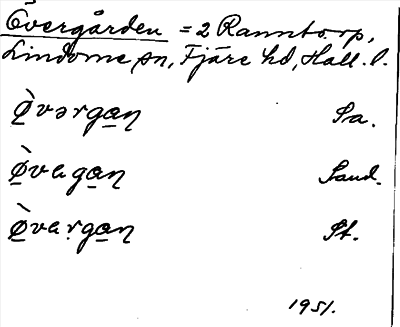 Övergården = 2 Ranntorp,
Lindome sn, Fjäre hd, Hall. l.
ø̀vərgan̥ Sa.
ø̀vagan̥ Sand.
ø̀vargan̥ St.
1951.